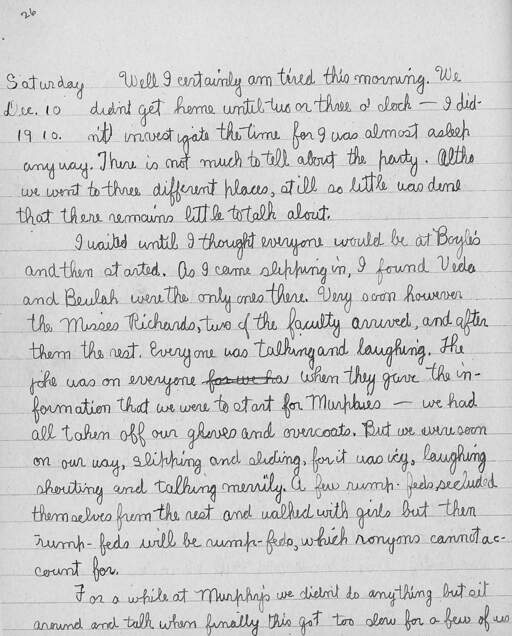 26
Saturday Well I certainly am tired this morning. We
Dec. 10 didn't get home until two or three o'clock — I did-
1910. n't investigate the time for I was almost asleep
anyway. There is not much to tell about the party. Altho
we went to three different places, still so little was done
that there remains little to talk about.
I waited until I thought everyone would be at Boyle's
and then started. As I came slipping in, I found Veda
and Beulah were the only ones there. Very soon however
the Misses Richards, two of the faculty arrived, and after
them the rest. Everyone was talking and laughing. The
joke was on everyone for we ha when they gave the in-
formation that we were to start for Murphies — we had
all taken off our gloves and overcoats. But we were soon
on our way, slipping and sliding, for it was icy, laughing
shouting and talking merrily. A few rump-feds secluded
themselves from the rest and walked with girls but then
rump-feds will be rump-feds, which ronyons cannot ac-
count for.
For a while at Murphy's we didn't do anything but sit
around and talk when finally this got too slow for a few of us